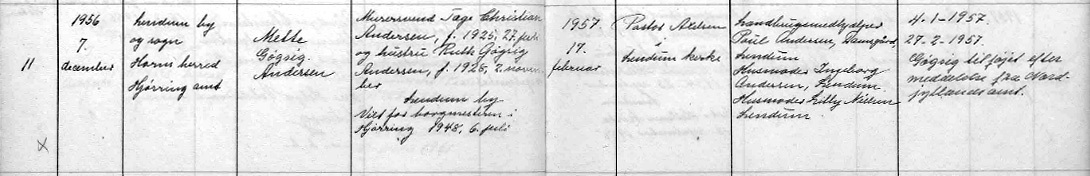 11
1956
7.
december
Lendum by
og sogn
Horns herred
Hjørring amt
Mette
Gøgsig
Andersen
Murersvend Tage Christian
Andersen, f. 1925, 27. juli
og hustru Ruth Gøgsig
Andersen, f. 1925, 2. novem
ber
Lendum by
Viet for borgmesteren i
Hjørring 1948, 6. juli
1957.
17.
februar
Pastor Axelsen
Lendum kirke
Landbrugsmedhjælper
Poul Andersen, Damgård,
Lendum
Husmoder Ingeborg
Andersen, Lendum.
Husmoder Lilly Nielsen
Lendum.
4.-1-1957.
27-2-1957.
Gøgsig tilføjet efter
meddelelse fra Nord-
jyllands amt.
x